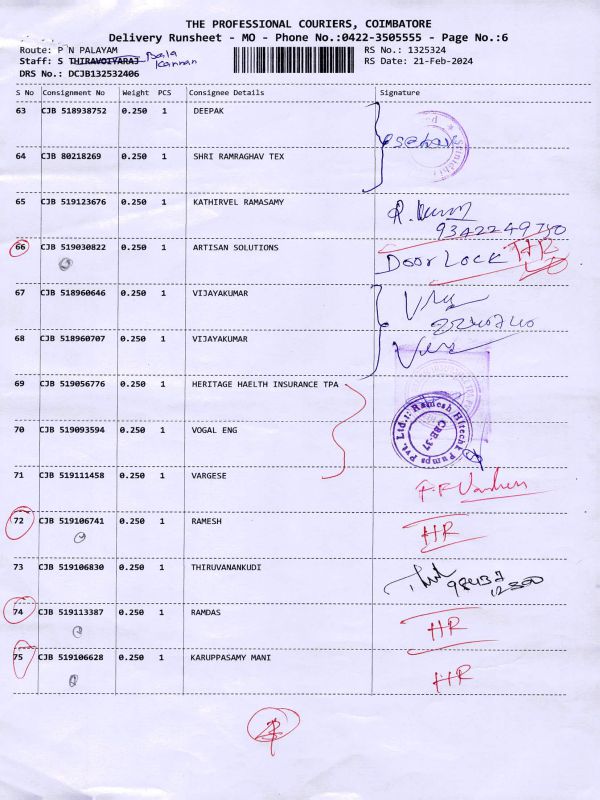 THE PROFESSIONAL COURIERS, COIMBATORE
Delivery Runsheet - MO - Phone No.:0422-3505555 - Page No.:6
Route: P N PALAYAM RS No.: 1325324
Bala
Staff: S THIRAVOIYARAJ Kannan RS Date: 21-Feb-2024
DRS No.: DCJB132532406
S No Consignment No Weight PCS Consignee Details Signature
63 CJB 518938752 0.250 1 DEEPAK
64 CJB 80218269 0.250 1 SHRI RAMRAGHAV TEX
65 CJB 519123676 0.250 1 KATHIRVEL RAMASAMY
9342249750
66 CJB 519030822 0.250 1 ARTISAN SOLUTIONS Door Lock
67 CJB 518960646 0.250 1 VIJAYAKUMAR
68 CJB 518960707 0.250 1 VIJAYAKUMAR
69 CJB 519056776 0.250 1 HERITAGE HAELTH INSURANCE TPA
Ramesh Hitecht Pumps Pvt. Ltd.
CBE-37
70 CJB 519093594 0.250 1 VOGAL ENG
71 CJB 519111458 0.250 1 VARGESE
72 CJB 519106741 0.250 1 RAMESH HR
73 CJB 519106830 0.250 1 THIRUVANANKUDI
74 CJB 519113387 0.250 1 RAMDAS HR
75 CJB 519106628 0.250 1 KARUPPASAMY MANI HR